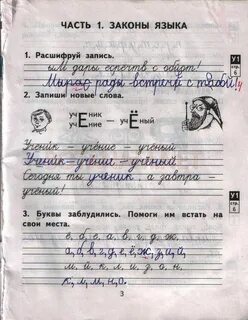 ЧАСТЬ 1. ЗАКОНЫ ЯЗЫКА
1. Расшифруй запись.
У1
стр.
6
ым дары сречтв с обйот!
Мы рады встрече с тобой!
2. Запиши новые слова.
У1
стр.
6
учЕник
учЕние — учЁный
Ученик – учение – учёный
Ученик – учение – учёный
Сегодня ты ученик, а завтра –
учёный!
3. Буквы заблудились. Помоги им встать на
свои места.
У1
стр.
6
е, б, е, а, в, г, д, ж.
а, б, в, г, д, е, ё, ж, з, и, й
м, й, к, л, и, з, о, н.
к, л, м, н, о.
3